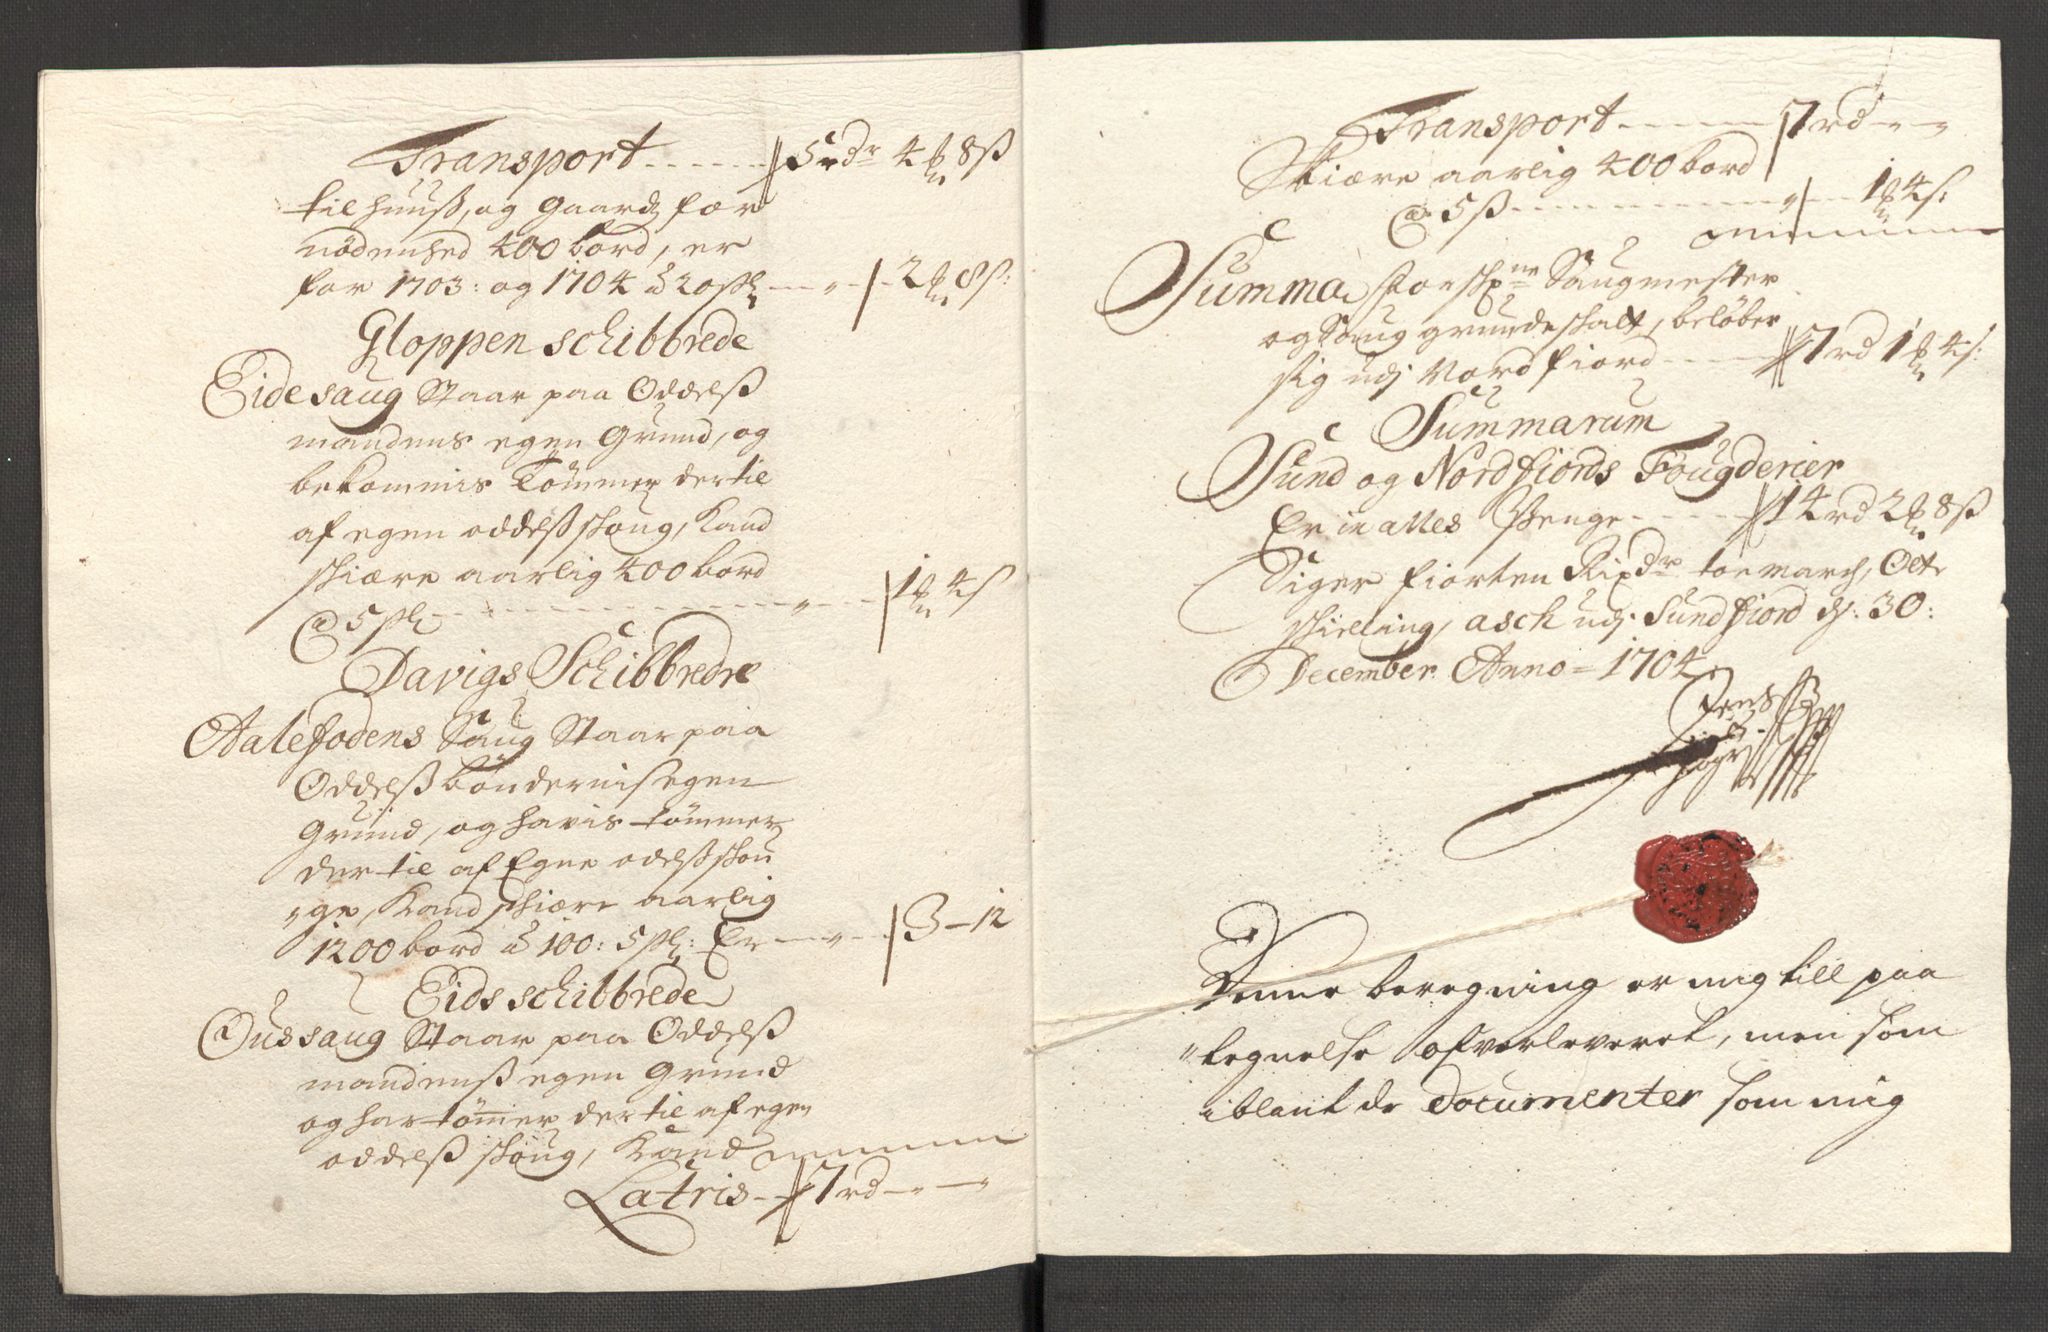 Transport ----- 5 rdr 4 ₻ 8 ß
til huuß, og gaardz for
nødenhed 400 bord, er
for 1703: og 1704 à 20 ßl --- " -- 2 ₻ 8 ß:
Gloppen schibbrede
Eide saug Staar paa Oddelß
mandens egen Grund, og
bekommis Tømmer dertil
af egen oddelß skoug, Kand
skiære aarlig 400 bord
@ 5 ßl ------------ " --- 1 ₻ 4 ß
Davigs Schibbrede
Aalefodens Saug Staar paa
Oddelß bøndernis egen
Grund, og havis tømmer
der til af Egne odelß skou
"ge, Kand skiære aarlig
1200 bord à 100: 5 ßl: Er --- " -- 3 - 12
Eids schibbrede
Oussaug Staar paa Oddelß
mandenß egen Grund
og har tømer der til af egen
oddelß skoug, Kand
Latris -- 7 rd -- " -- "
Transport ------ 7 rd -- " - "
Skiære aarlig 400 bord
@ 5 ß ------------ " --- 1 ₻ 4 ß:
Summa Saugmester
og Saug grunde skatt, beløber
sig udj Nordfiord ---- 7 rd 1 ₻ 4 ß:
Summarum
Sund og Nordfiords Fougderier
Er in alles Penge ----- 14 rd 2 ₻ 8 ß
Siger fiorten Rixdr toe march, Otte
skielling, asch udj Sundfiord d: 30:
December Anno = 1704
Denne beregning er mig till paa
"tegnelse ofverleveret, men som
iblant de documenter som mig